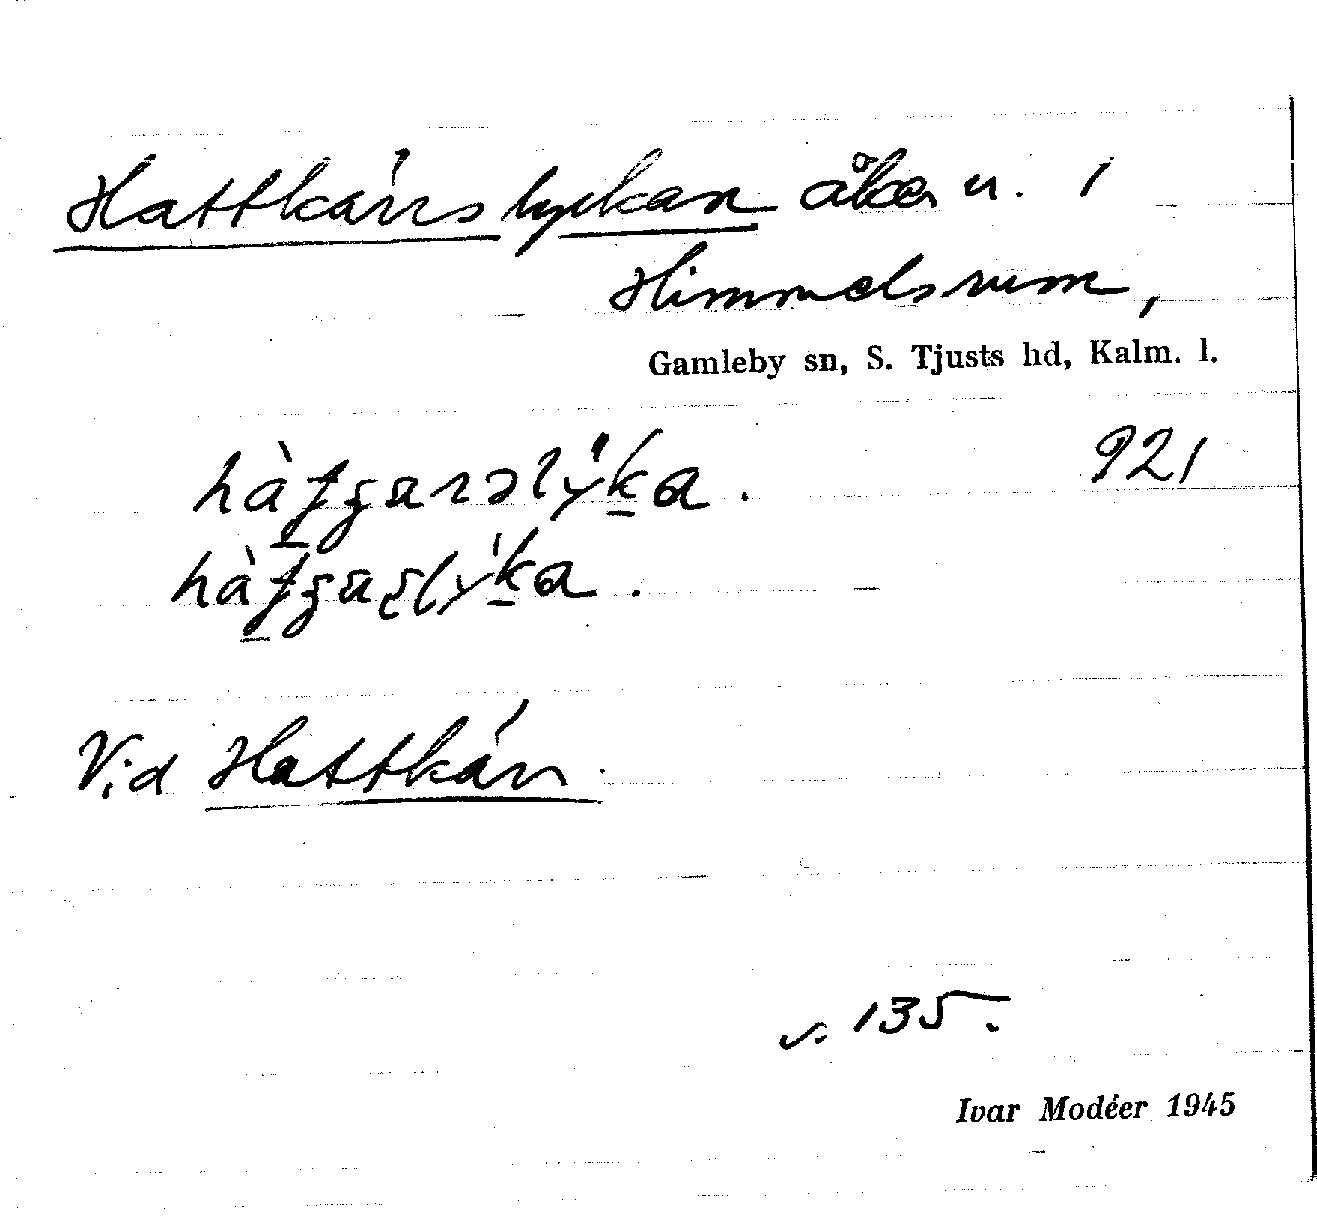 Hattkärrslyckan åker n. 1
Himmelsrum,
Gamleby sn, S. Tjusts hd, Kalm. l.
921
Vid Hattkärr.
s. 135.
Ivar Modéer 1945